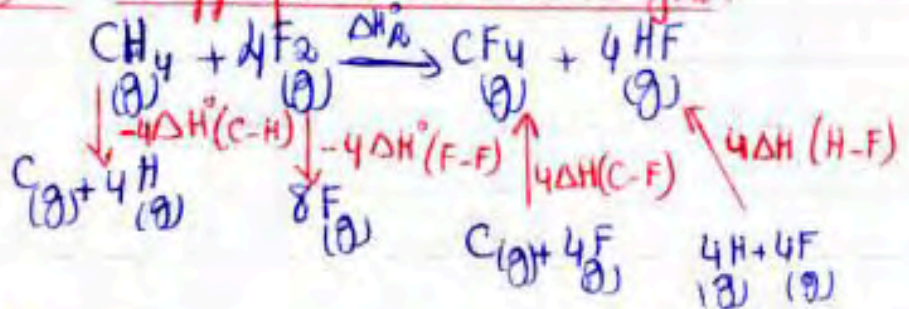 CH4 (g) + 4F2 (g) ΔH°R → CF4 (g) + 4HF (g)
-4ΔH°(C-H) -4ΔH°(F-F) 4ΔH(C-F) 4ΔH (H-F)
C(g) + 4H(g) 8F(g) C(g) + 4F(g) 4H(g) + 4F(g)